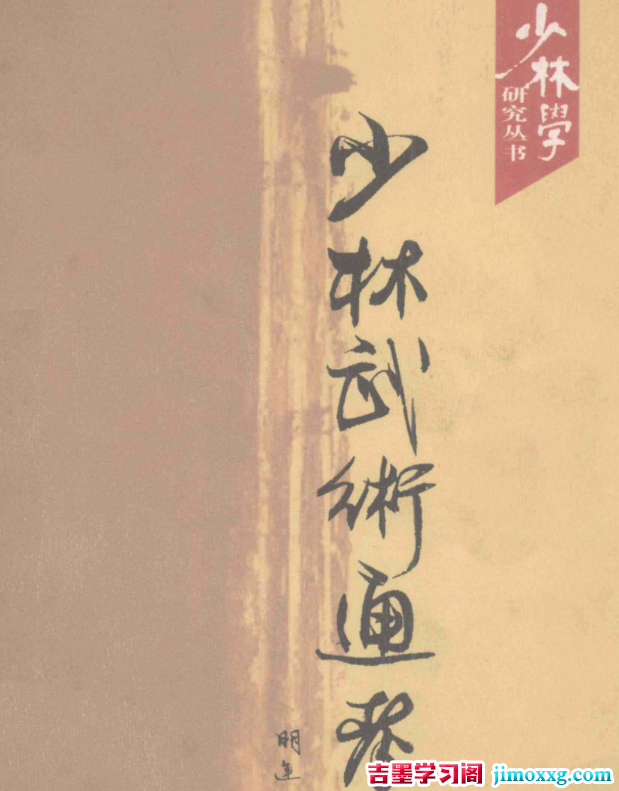 少林學
研究丛书
少林武術通
明
吉墨学习阁 jimoxxg.com